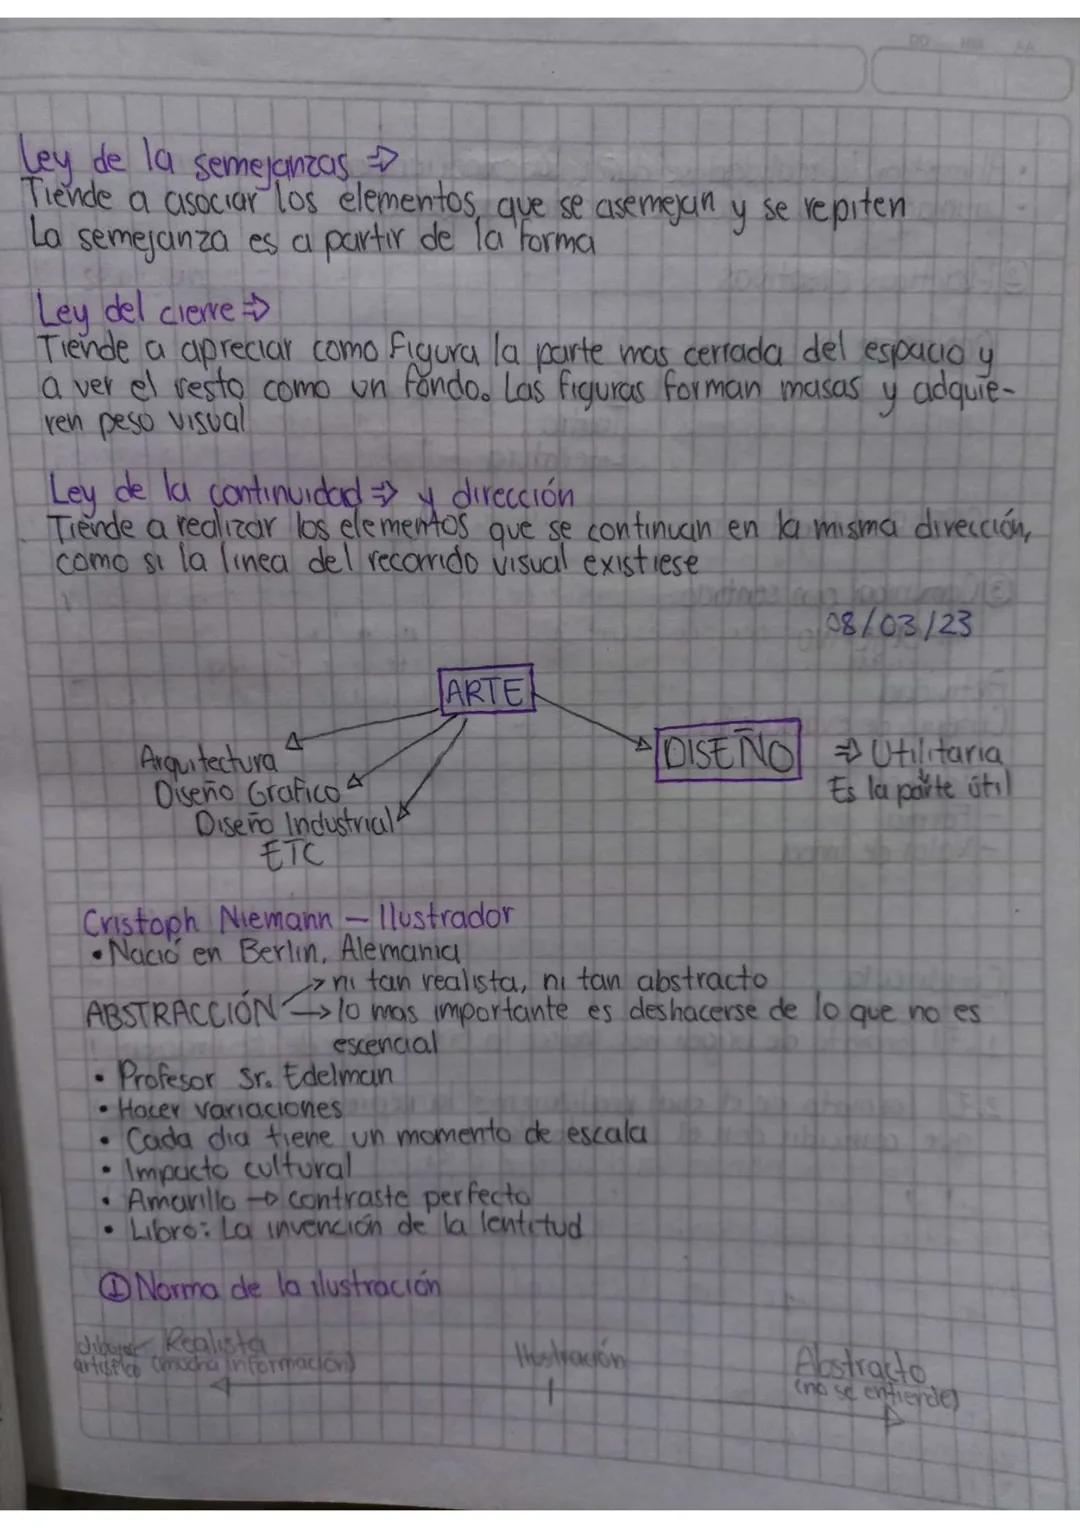 Ley de la semejanzas ⇒
Tiende a asociar los elementos que se asemejan y se repiten
La semejanza es a partir de la forma
Ley del cierre ⇒
Tiende a apreciar como figura la parte mas cerrada del espacio y
a ver el resto como un fondo. Las figuras forman masas y adquie-
ren peso visual
Ley de la continuidad ⇒ y dirección
Tiende a realizar los elementos que se continuan en la misma dirección,
como si la linea del recorrido visual existiese
08/03/23
ARTE
Arquitectura
Diseño Grafico
Diseño Industrial
ETC
DISEÑO ⇒ Utilitaria
Es la parte útil
Cristoph Niemann – Ilustrador
• Nació en Berlin, Alemania
ABSTRACCIÓN → ni tan realista, ni tan abstracto
→ lo mas importante es deshacerse de lo que no es
escencial
• Profesor Sr. Edelman
• Hacer variaciones
• Cada dia tiene un momento de escala
• Impacto cultural
• Amarillo → contraste perfecto
• Libro: La invención de la lentitud
① Norma de la ilustración
dibujo artistico
Realista
(mucha información)
Ilustración
Abstracto
(no se entiende)